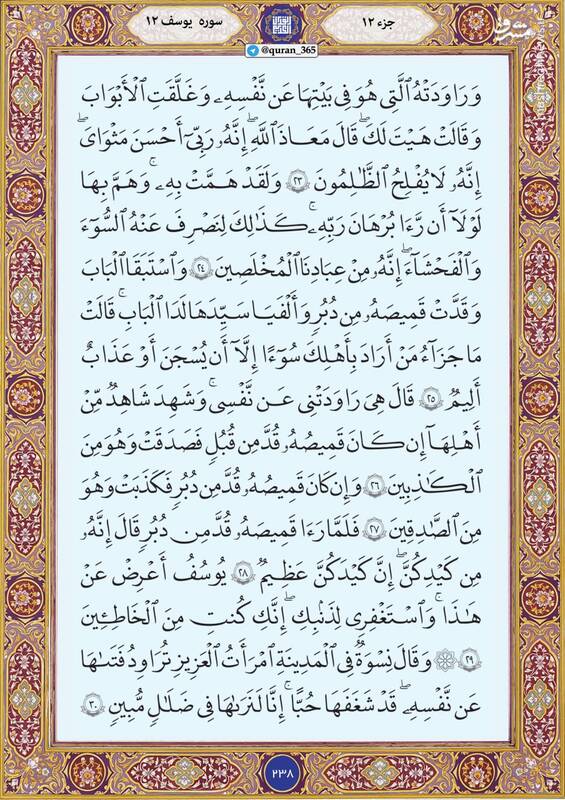 سوره یوسف ۱۲
جزء ۱۲
@quran_365
وَرَاوَدَتْهُ الَّتِي هُوَ فِي بَيْتِهَا عَن نَّفْسِهِۦ وَغَلَّقَتِ الْأَبْوَابَ
وَقَالَتْ هَيْتَ لَكَ ۖ قَالَ مَعَاذَ اللَّهِ ۖ إِنَّهُۥ رَبِّيٓ أَحْسَنَ مَثْوَايَ ۖ
إِنَّهُۥ لَا يُفْلِحُ الظَّٰلِمُونَ ۲۳ وَلَقَدْ هَمَّتْ بِهِۦ ۖ وَهَمَّ بِهَا
لَوْلَآ أَن رَّءَا بُرْهَانَ رَبِّهِۦ ۚ كَذَٰلِكَ لِنَصْرِفَ عَنْهُ السُّوٓءَ
وَالْفَحْشَآءَ ۚ إِنَّهُۥ مِنْ عِبَادِنَا الْمُخْلَصِينَ ۲۴ وَاسْتَبَقَا الْبَابَ
وَقَدَّتْ قَمِيصَهُۥ مِن دُبُرٍ وَأَلْفَيَا سَيِّدَهَا لَدَا الْبَابِ ۚ قَالَتْ
مَا جَزَآءُ مَنْ أَرَادَ بِأَهْلِكَ سُوٓءًا إِلَّآ أَن يُسْجَنَ أَوْ عَذَابٌ
أَلِيمٌ ۲۵ قَالَ هِيَ رَاوَدَتْنِي عَن نَّفْسِي ۚ وَشَهِدَ شَاهِدٌ مِّنْ
أَهْلِهَآ إِن كَانَ قَمِيصُهُۥ قُدَّ مِن قُبُلٍ فَصَدَقَتْ وَهُوَ مِنَ
الْكَٰذِبِينَ ۲۶ وَإِن كَانَ قَمِيصُهُۥ قُدَّ مِن دُبُرٍ فَكَذَبَتْ وَهُوَ
مِنَ الصَّٰدِقِينَ ۲۷ فَلَمَّا رَءَا قَمِيصَهُۥ قُدَّ مِن دُبُرٍ قَالَ إِنَّهُۥ
مِن كَيْدِكُنَّ ۖ إِنَّ كَيْدَكُنَّ عَظِيمٌ ۲۸ يُوسُفُ أَعْرِضْ عَنْ
هَٰذَا ۚ وَاسْتَغْفِرِي لِذَنبِكِ ۖ إِنَّكِ كُنتِ مِنَ الْخَاطِئِينَ
۲۹ ۞ وَقَالَ نِسْوَةٌ فِي الْمَدِينَةِ امْرَأَتُ الْعَزِيزِ تُرَاوِدُ فَتَىٰهَا
عَن نَّفْسِهِۦ ۖ قَدْ شَغَفَهَا حُبًّا ۖ إِنَّا لَنَرَىٰهَا فِي ضَلَالٍ مُّبِينٍ ۳۰
۲۳۸